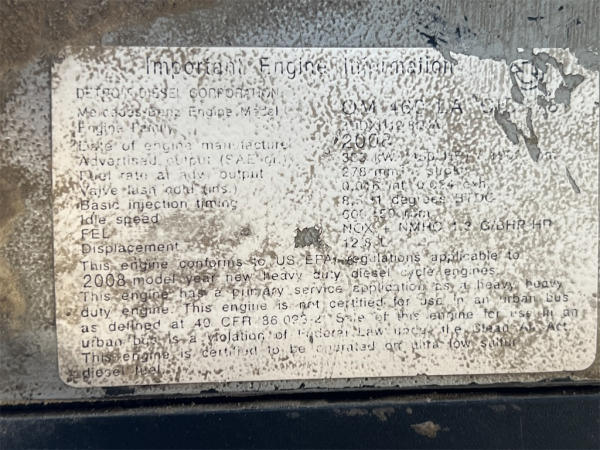 Important Engine Information
DETROIT DIESEL CORPORATION
Mercedes-Benz Engine Model OM 460 LA
Engine Family
Date of engine manufacture 200
Advertised output (SAE
Fuel rate at adv. output 278 mm
Valve lash cold (ins.) 0.016 int 0.024 exh
Basic injection timing degrees BTDC
Idle speed 600
FEL NOX + NMHC 1.2 G/BHR-HR
Displacement 12.8 L
This engine conforms to US EPA regulations applicable to
2008 model year new heavy duty diesel cycle engines.
This engine has a primary service application as a heavy heavy
duty engine. This engine is not certified for use in an urban bus
as defined at 40 CFR 86.093-2. Sale of this engine for use in an
urban bus is a violation of Federal Law under the Clean Air Act.
This engine is certified to be operated on ultra low sulfur
diesel fuel.